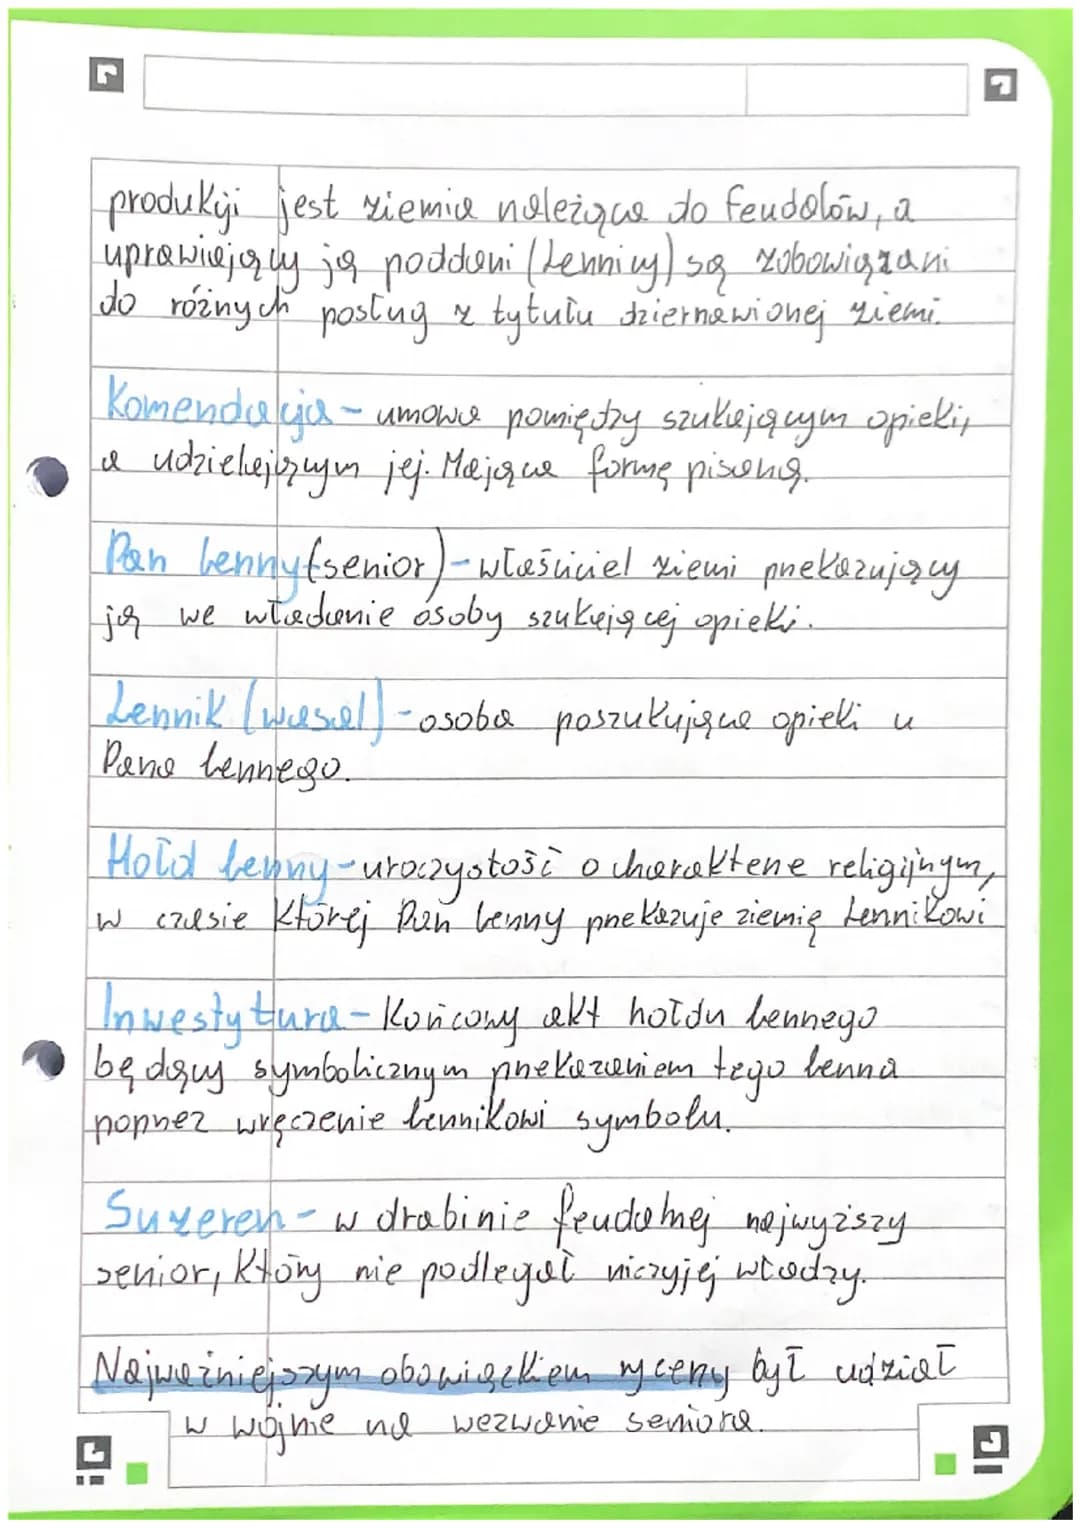 produkcji jest ziemia należąca do feudałów, a
uprawiający ją poddani (Lennicy) są zobowiązani
do różnych posług z tytułu dzierżawionej ziemi.
Komendacja - umowa pomiędzy szukającym opieki,
a udzielającym jej. Mająca formę pisaną.
Pan lenny (senior) - właściciel ziemi przekazujący
ją we władanie osoby szukającej opieki.
Lennik (wasal) - osoba poszukująca opieki u
Pana lennego.
Hołd lenny - uroczystość o charakterze religijnym,
w czasie której Pan lenny przekazuje ziemię Lennikowi
Inwestytura - Końcowy akt hołdu lennego
będący symbolicznym przekazaniem tego lenna
poprzez wręczenie lennikowi symbolu.
Suzeren - w drabinie feudalnej najwyższy
senior, który nie podlegał niczyjej władzy.
Najważniejszym obowiązkiem rycerzy był udział
w wojnie na wezwanie seniora.